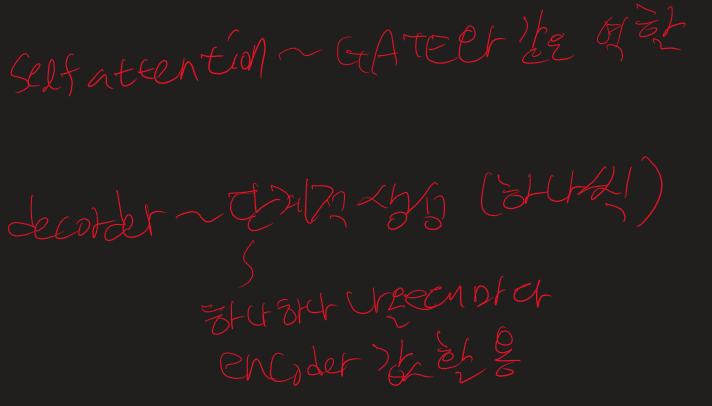 Self attention ~ GATE와 같은 역할
decoder ~ 단계적 생성 (하나씩)
하나하나 나올때마다
encoder 값 활용